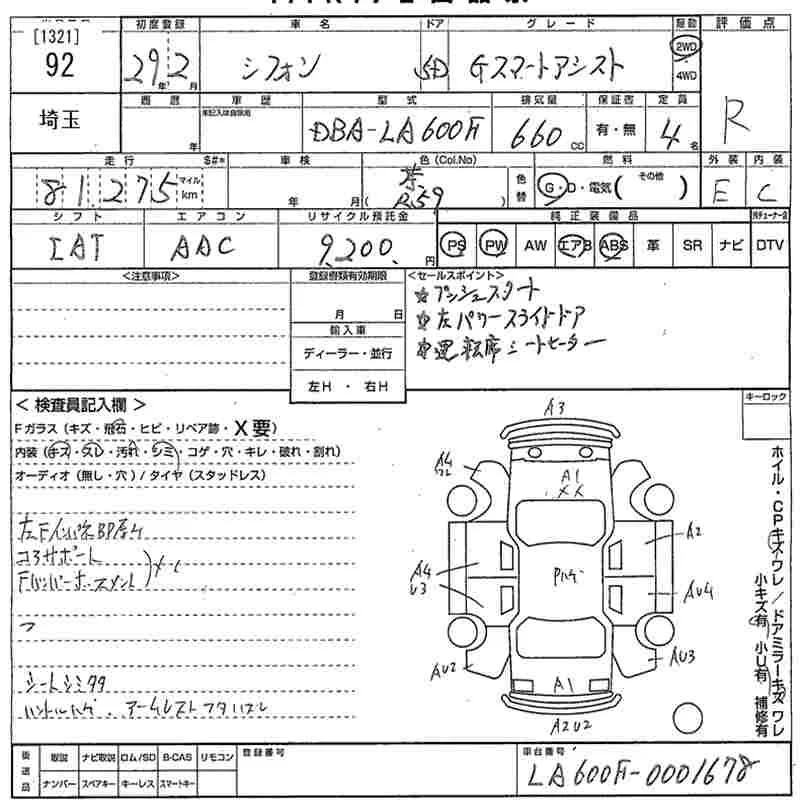 [1321]
92
埼玉
初度登録
29年2月
車名
シフォン
ドア
5D
グレード
Gスマートアシスト
駆動
2WD
・4WD
評価点
R
車歴
未記入は自家用
年
型式
DBA-LA600F
排気量
660 cc
保証書
有・無
定員
4名
走行
81,275
マイル
km
S#*
車検
年 月
色(Col.No)
茶
R59
色替
燃料
G・D・電気( その他 )
外装
E
内装
C
シフト
IAT
エアコン
AAC
リサイクル預託金
9,200.円
純正装備品
PS PW AW エアB ABS 革 SR ナビ DTV
<注意事項>
登録書類有効期限
月 日
輸入車
ディーラー・並行
左H・右H
<セールスポイント>
☆プッシュスタート
☆左パワースライドドア
☆運転席シートヒーター
< 検査員記入欄 >
Fガラス(キズ・飛石・ヒビ・リペア跡・X要)
内装(キズ・スレ・汚れ・シミ・コゲ・穴・キレ・破れ・割れ)
オーディオ(無し・穴)/タイヤ(スタッドレス)
コアサポート
フ
シートシミタタ
アームレストフタハズレ
キーロック
ホイル・CPキズワレ/ドアミラーキズワレ
小キズ有 小U有 補修有
A3
A4
A1
メス
A2
A4
U3
Pハゲ
AU4
AU2
AU3
A1
A2U2
後送品
取説 ナビ取説 ロム/SD B-CAS リモコン
ナンバー スペアキー キーレス スマートキー
登録番号
車台番号
LA600F-0001678